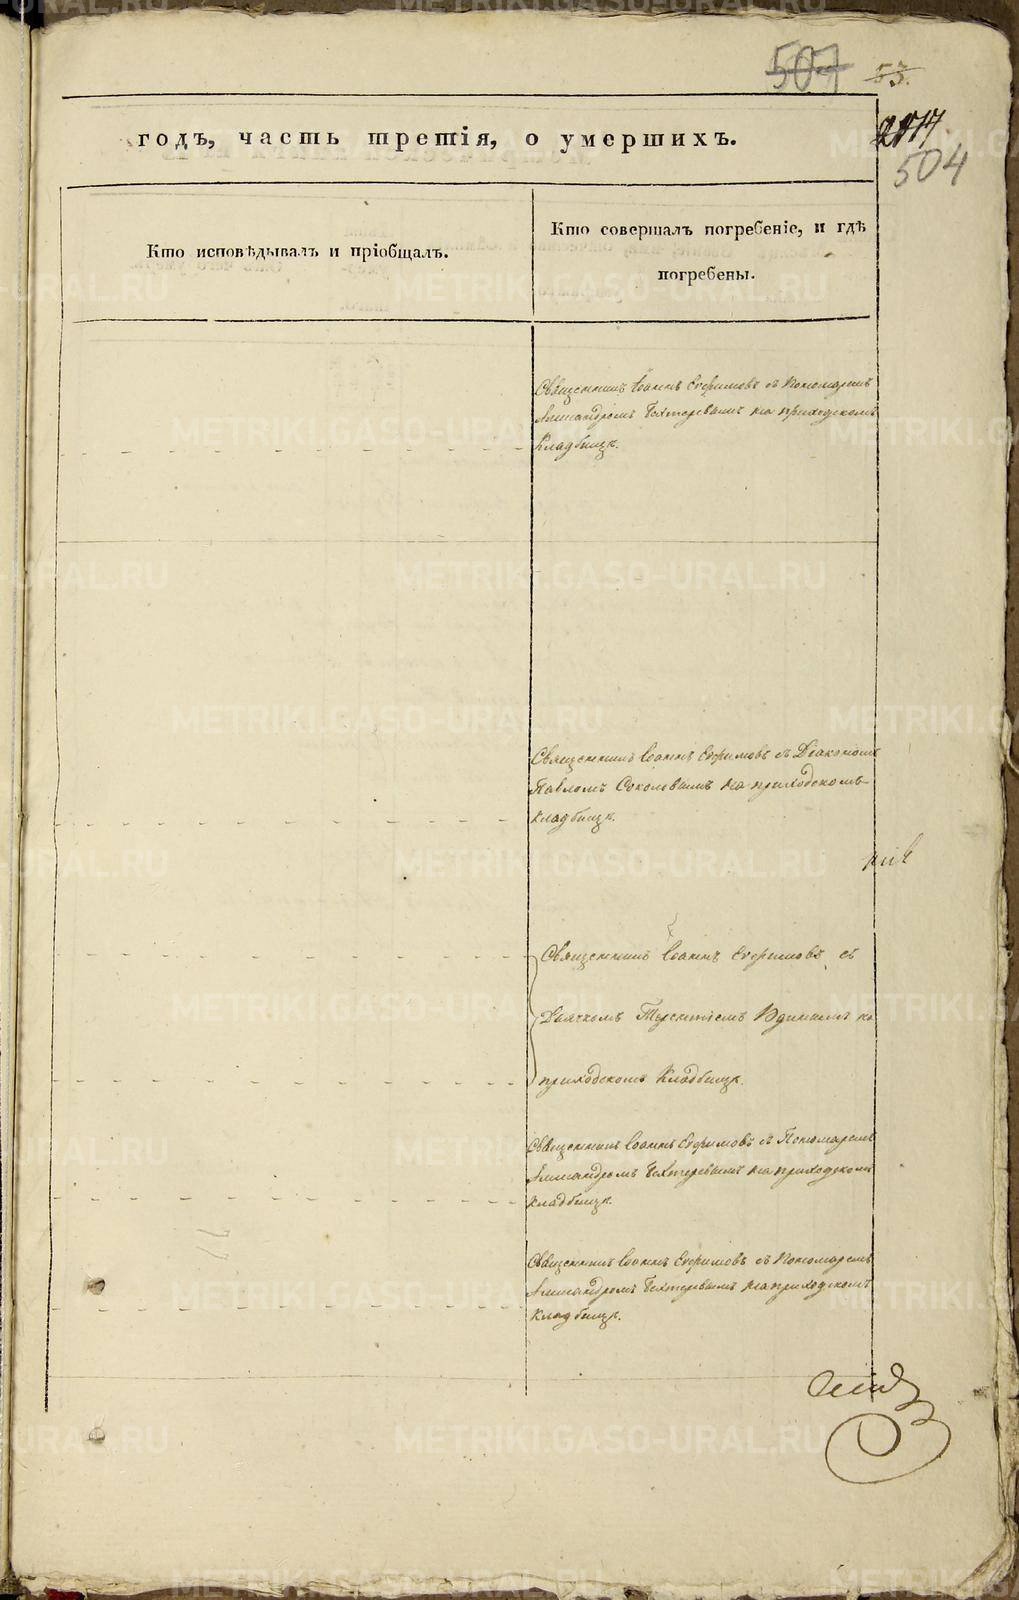 507 53.
504
годъ, часть третія, о умершихъ.
Кто исповѣдывалъ и пріобщалъ.
Кто совершалъ погребеніе, и гдѣ
погребены.
Священникъ Іоаннъ Ефимовъ съ Пономаремъ
Александромъ Бахтеревымъ на приходскомъ
Кладбищѣ.
Священникъ Іоаннъ Ефимовъ съ Діакономъ
Павломъ Соколовымъ на приходскомъ
кладбищѣ.
Священникъ Іоаннъ Ефимовъ съ
Дьячкомъ Терентіемъ на
приходскомъ Кладбищѣ.
Священникъ Іоаннъ Ефимовъ съ Пономаремъ
Александромъ Бахтеревымъ на приходскомъ
кладбищѣ.
Священникъ Іоаннъ Ефимовъ съ Пономаремъ
Александромъ Бахтеревымъ на приходскомъ
кладбищѣ.
METRIKI.GASO-URAL.RU